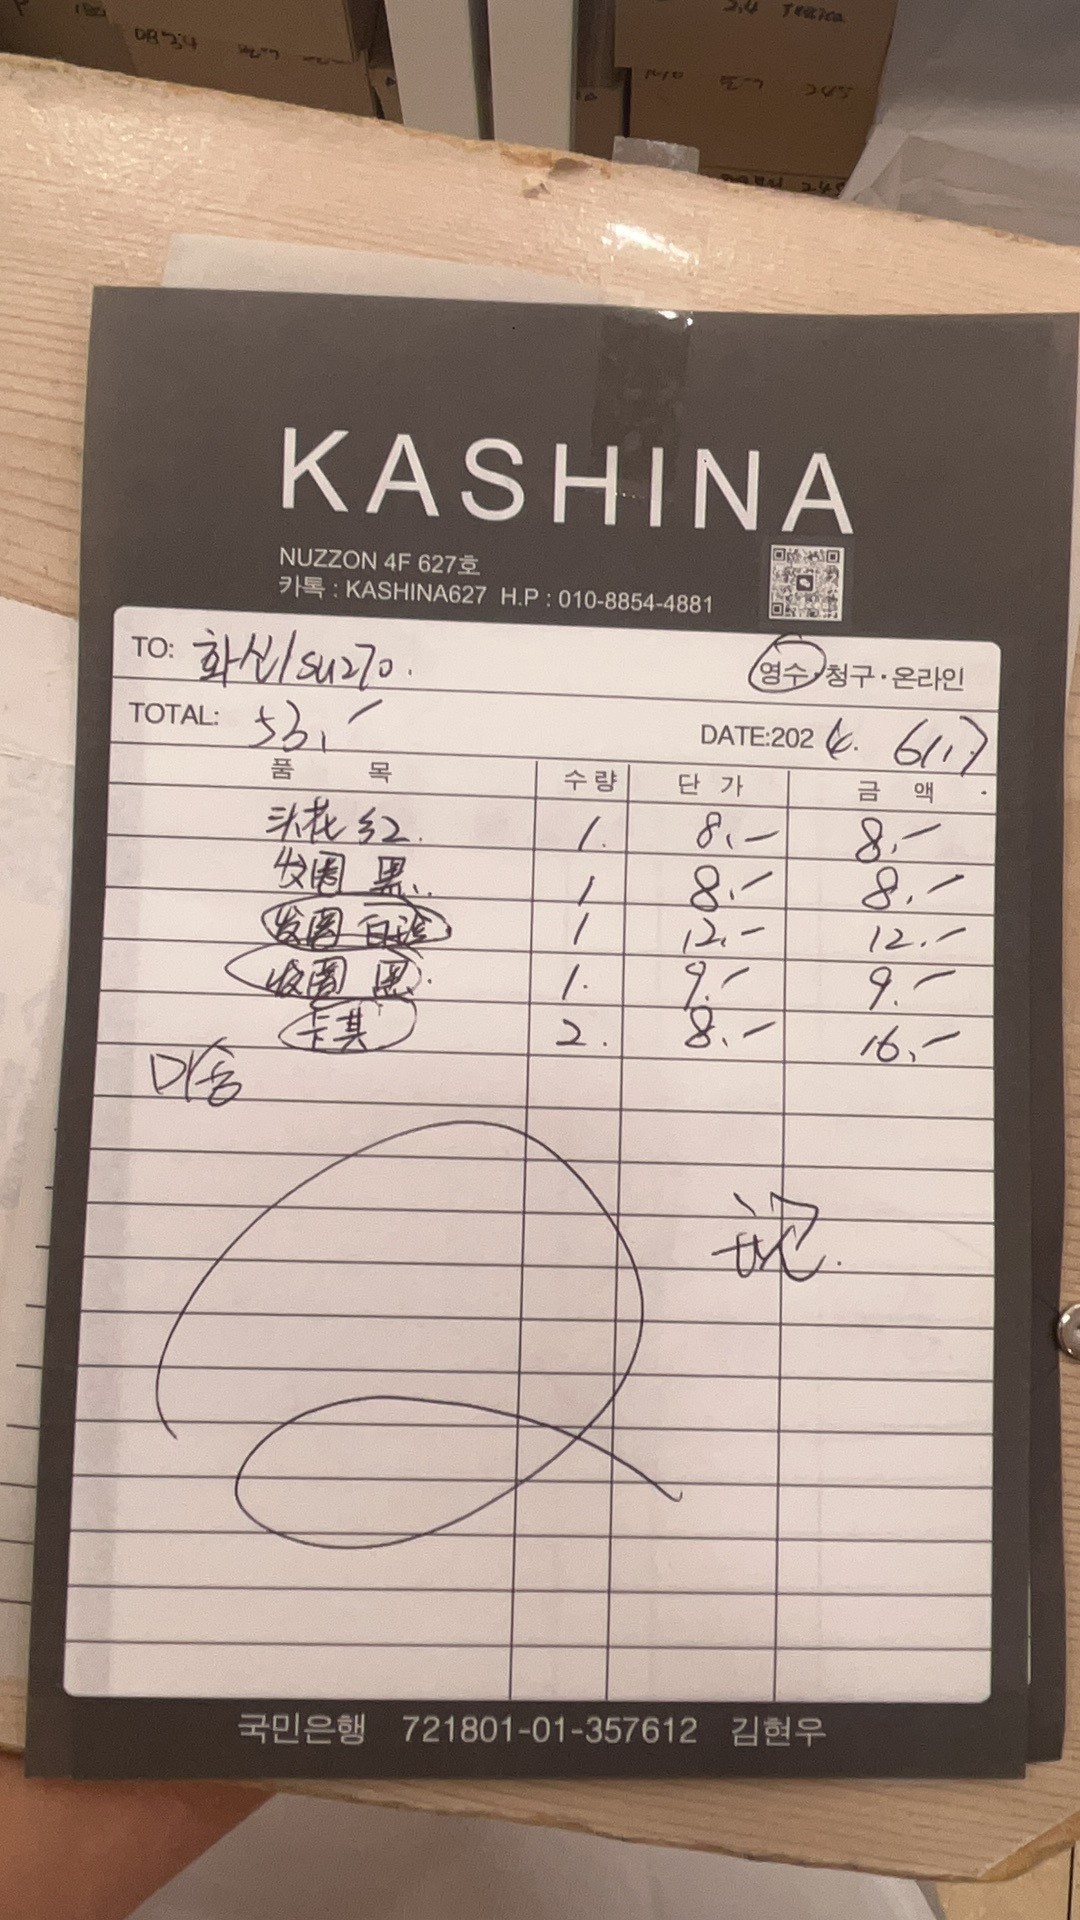 KASHINA
NUZZON 4F 627호
카톡 : KASHINA627 H.P : 010-8854-4881
TO: 화신/su270.
영수·청구·온라인
TOTAL: 53,-
DATE:2024. 6/17
품 목 수량 단 가 금 액
头花 红. 1. 8.- 8.-
发圈 黑. 1 8.- 8.-
发圈 白 1 12.- 12.-
发圈 黑. 1. 9.- 9.-
卡其 2. 8.- 16.-
미송
记.
국민은행 721801-01-357612 김현우